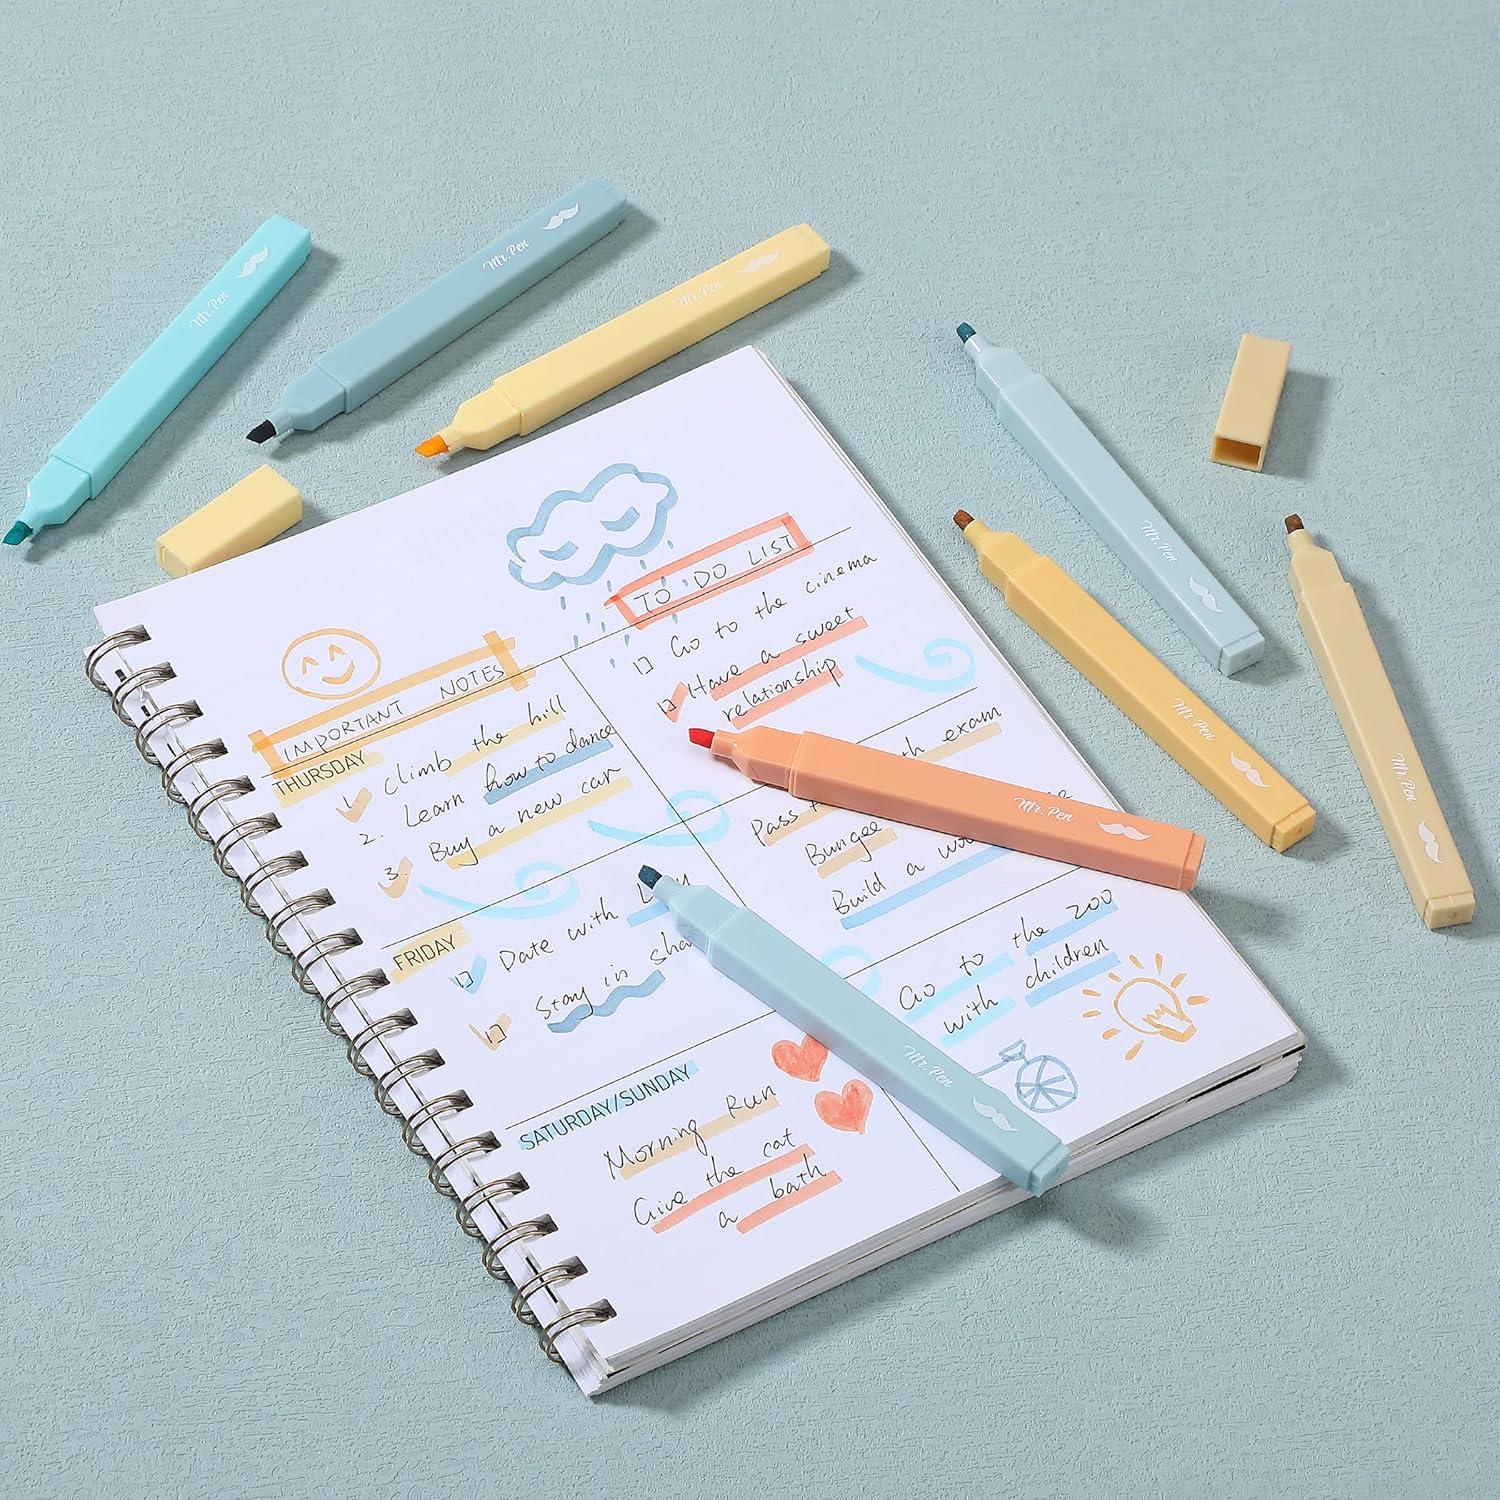 Mr. Pen
Mr. Pen
Mr. Pen
IMPORTANT NOTES
THURSDAY
1. Climb the hill
2. Learn how to dance
3. Buy a new car
FRIDAY
1] Date with
1] Stay in
SATURDAY/SUNDAY
Morning Run
Give the cat
a bath
TO DO LIST
1] Go to the cinema
1] Have a sweet
relationship
Pass exam
Bungee
Build a
Go to the zoo
with children
Mr. Pen
Mr. Pen
Mr. Pen
Mr. Pen
Mr. Pen